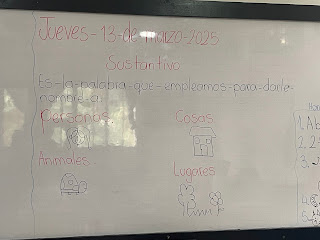 Jueves-13-de-marzo-2025
Sustantivo
Es-la-palabra-que-empleamos-para-darle-
nombre-a:
Personas. Cosas
Animales. Lugares
1. Ab
2. 2
3.
4.
5.